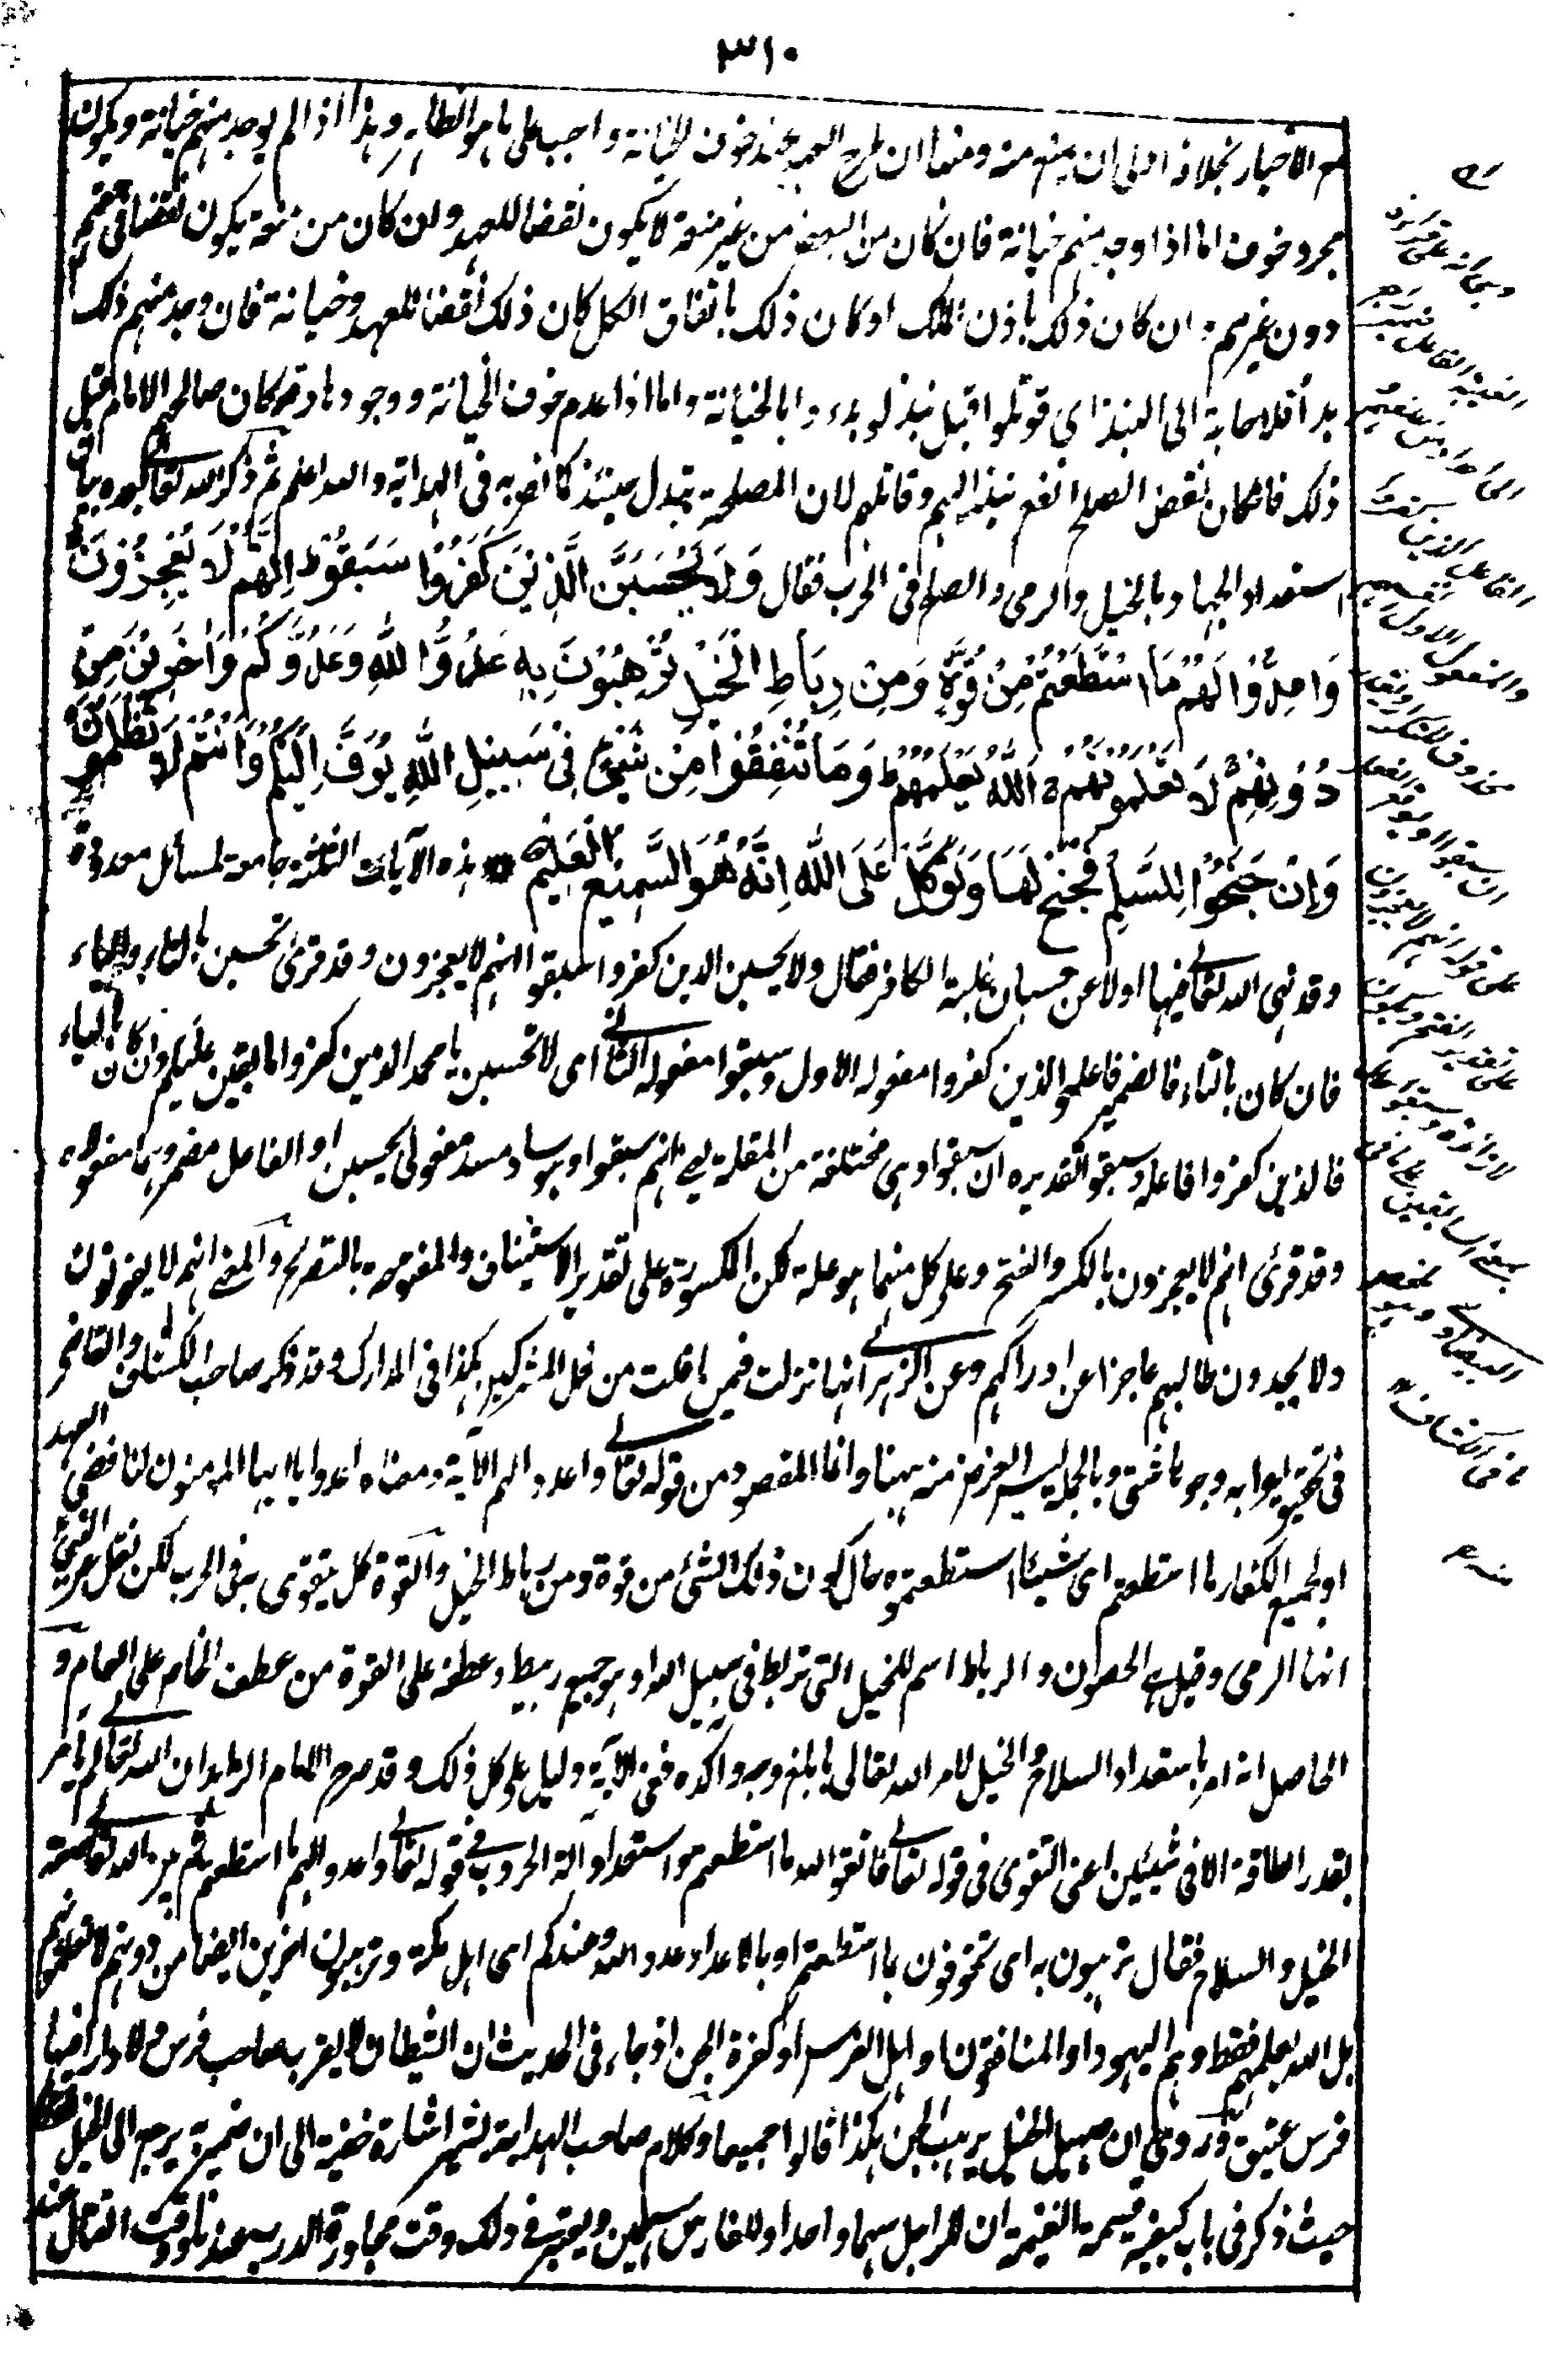 ٣١٠
مع الاخبار بخلافه اولى ان يمنع منه ومنها ان طرح العهد عند خوف الخيانة واجب على ما هو الظاهر وهذا اذا لم يوجد منهم خيانة ويكون
مجرد خوف اما اذا وجد منهم خيانة فان كان من البعض من غير منعة لا يكون نقضا للعهد وان كان من منعة يكون نقضا فى حقهم
دون غيرهم وان كان ذلك باذن الملك او كان ذلك باتفاق الكل كان ذلك نقضا للعهد وخيانة فان وجد منهم ذلك
بدأ فلا حاجة الى النبذ اى قوتلوا قبل نبذ لو بدءوا بالخيانة واما اذا عدم خوف الخيانة ووجودها رقد كان صالحهم الامام قبل
ذلك فان كان نقض الصلح انفع نبذ اليهم وقاتلهم لان المصلحة تبدل حينئذ كما نص به فى الهداية والله اعلم ثم ذكر الله تعالى بعده بيان
استعداد الجهاد بالخيل والرمى والصلح فى الحرب فقال وَلَا يَحْسَبَنَّ الَّذِيْنَ كَفَرُوْا سَبَقُوْا ط اِنَّهُمْ لَا يُعْجِزُوْنَ
وَاَعِدُّوْا لَهُمْ مَا اسْتَطَعْتُمْ مِنْ قُوَّةٍ وَمِنْ رِبَاطِ الْخَيْلِ تُرْهِبُوْنَ بِهٖ عَدُوَّ اللهِ وَعَدُوَّكُمْ وَاٰخَرِيْنَ مِنْ
دُوْنِهِمْ لَا تَعْلَمُوْنَهُمْ اَللهُ يَعْلَمُهُمْ ط وَمَا تُنْفِقُوْا مِنْ شَيْءٍ فِيْ سَبِيْلِ اللهِ يُوَفَّ اِلَيْكُمْ وَاَنْتُمْ لَا تُظْلَمُوْنَ
وَاِنْ جَنَحُوْا لِلسَّلْمِ فَاجْنَحْ لَهَا وَتَوَكَّلْ عَلَى اللهِ اِنَّهُ هُوَ السَّمِيْعُ الْعَلِيْمُ هذه الآيات الثلثة جامعة لمسائل معدودة
وقد نهى الله تعالى فيها اولا عن حسبان غلبة الكافر فقال ولا يحسبن الذين كفروا سبقوا انهم لا يعجزون وقد قرئ تحسبن بالتاء والياء
فان كان بالتاء فالضمير فاعله والذين كفروا مفعوله الاول وسبقوا مفعوله الثانى اى لا تحسبن يا محمد الذين كفروا سابقين عليكم وان كان بالياء
فالذين كفروا فاعله وسبقوا تقديره ان سبقوا وهى مختلفة من المثقلة اى انهم سبقوا وهو ساد مسد مفعولى يحسبن او الفاعل مضمر وهما مفعولاه
وقد قرئ انهم لا يعجزون بالكسر والفتح وعلى كل منهما هو علة لكن المكسورة على تقدير الاستيناف والمفتوحة بالتصريح والمعنى انهم لا يفوتون
ولا يجدون طالبهم عاجزا عن ادراكهم وعن الزهرى انها نزلت فيمن افلت من فل المشركين هكذا فى المدارك وقد ذكر صاحب الكشاف والقاضى
فى تحقيق اعرابه وجوها شتى وبالجملة ليس الغرض منه ههنا وانما المقصود من قوله تعالى واعدوا لهم الآية ومعناه اعدوا يا ايها المؤمنون لناقضى العهد
او لجميع الكفار ما استطعتم اى شيئا استطعتموه حال كون ذلك الشئ من قوة ومن رباط الخيل والقوة كل يتقوى به فى الحرب لكن نقل عن النبى
انها الرمى وقيل هى الحصون والرباط اسم للخيل التى تربط فى سبيل الله او هو جمع ربيط وعطفه على القوة من عطف الخاص على العام و
الحاصل انه امر باستعداد السلاح والخيل لامر الله تعالى بابلغ وجه واكده ففى الآية دليل على كل ذلك وقد صرح الامام الزاهد ان الله تعالى لم يامر
بقدر الطاقة الا فى شيئين اعنى التقوى فى قوله تعالى فاتقوا الله ما استطعتم واستعداد آلة الحروب فى قوله تعالى واعدوا لهم ما استطعتم ثم بين الله تعالى صفة
الخيل والسلاح فقال ترهبون به اى تخوفون بما استطعتم او بالاعداد عدو الله وعدوكم اى اهل مكة وترهبون آخرين ايضا من دونهم لا تعلمونهم
بل الله يعلمهم فقط وهم اليهود او المنافقون او اهل الفرس او كفرة الجن اذ جاء فى الحديث ان الشيطان لا يقرب صاحب فرس ولا دارا فيها
فرس عتيق وروى ان صهيل الخيل يرهب الجن هكذا قالوا جميعا وكلام صاحب الهداية يشير اشارة خفية الى ان ضميره يرجع الى الخيل
حيث ذكر فى باب كيفية قسمة الغنيمة ان للراجل سهما واحدا وللفارس سهمين ويعتبر فى ذلك وقت مجاوزة الدرب عندنا ووقت القتال عند